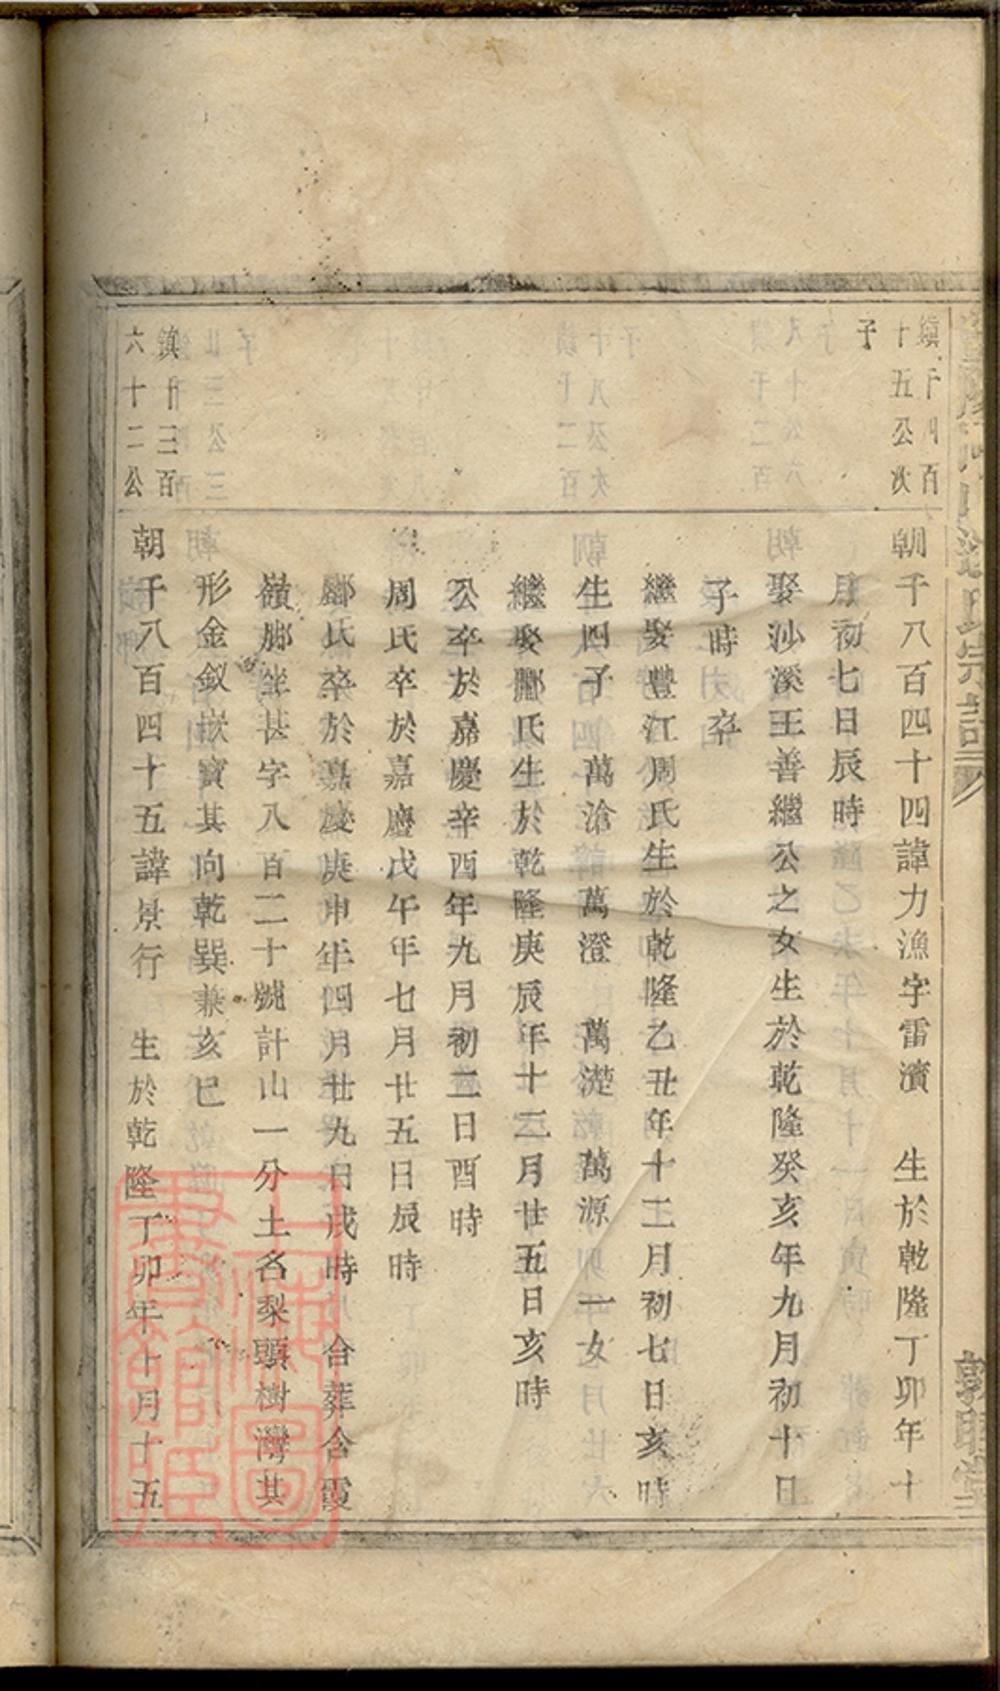 十五公次
子
朝千八百四十四諱力漁字雷濱 生於乾隆丁卯年十
月初七日辰時
娶沙溪王善繼公之女生於乾隆癸亥年九月初十日
子時 卒
繼娶豐江周氏生於乾隆乙丑年十二月初七日亥時
生四子 萬滄 萬澄 萬濋 萬源 一女
繼娶酈氏生於乾隆庚辰年十二月廿五日亥時
公卒於嘉慶辛酉年九月初二日酉時
周氏卒於嘉慶戊午年七月廿五日辰時
酈氏卒於嘉慶庚申年四月廿九日戌時 合葬含霞
嶺脚坐甚字八百二十號計山一分土名梨頭樹灣其
形金釵嵌寳其向乾巽兼亥巳
鎮廿三百
六十二公
朝千八百四十五諱景行 生於乾隆丁卯年十月十五